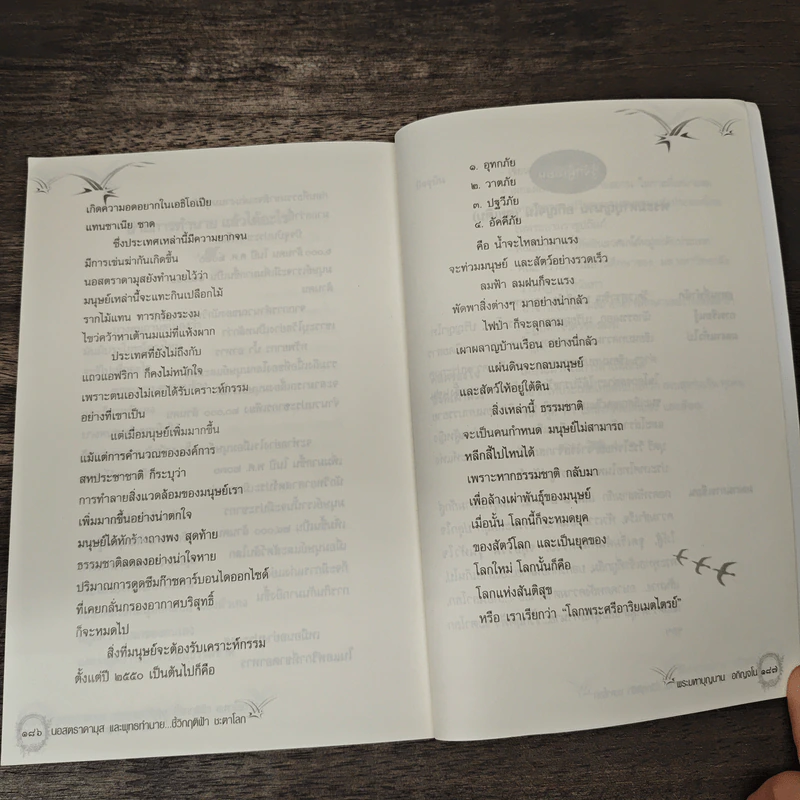 เกิดความอดอยากในเอธิโอเปีย
แทนซาเนีย ชาด
ซึ่งประเทศเหล่านี้มีความยากจน
มีการเข่นฆ่ากันเกิดขึ้น
นอสตราดามุสยังทำนายไว้ว่า
มนุษย์เหล่านี้จะแทะกินเปลือกไม้
รากไม้แทน ทารกร้องระงม
ไขว่คว้าหาเต้านมแม่ที่แห้งผาก
ประเทศที่ยังไม่ถึงกับ
แถวแอฟริกา ก็คงไม่หนักใจ
เพราะตนเองไม่เคยได้รับเคราะห์กรรม
อย่างที่เขาเป็น
แต่เมื่อมนุษย์เพิ่มมากขึ้น
แม้แต่การคำนวณขององค์การ
สหประชาชาติ ก็ระบุว่า
การทำลายสิ่งแวดล้อมของมนุษย์เรา
เพิ่มมากขึ้นอย่างน่าตกใจ
มนุษย์ได้หักร้างถางพง สุดท้าย
ธรรมชาติลดลงอย่างน่าใจหาย
ปริมาณการดูดซึมก๊าซคาร์บอนไดออกไซด์
ที่เคยกลั่นกรองอากาศบริสุทธิ์
ก็จะหมดไป
สิ่งที่มนุษย์จะต้องรับเคราะห์กรรม
ตั้งแต่ปี ๒๕๕๐ เป็นต้นไปก็คือ
๑๘๖ นอสตราดามุส และพุทธทำนาย...ชี้วิกฤติฟ้า ชะตาโลก
๑. อุทกภัย
๒. วาตภัย
๓. ปฐวีภัย
๔. อัคคีภัย
คือ น้ำจะไหลบ่ามาแรง
จะท่วมมนุษย์ และสัตว์อย่างรวดเร็ว
ลมฟ้า ลมฝนก็จะแรง
พัดพาสิ่งต่างๆ มาอย่างน่ากลัว
ไฟป่า ก็จะลุกลาม
เผาผลาญบ้านเรือน อย่างนี่กลัว
แผ่นดินจะกลบมนุษย์
และสัตว์ให้อยู่ใต้ดิน
สิ่งเหล่านี้ ธรรมชาติ
จะเป็นคนกำหนด มนุษย์ไม่สามารถ
หลีกลี้ไปไหนได้
เพราะหากธรรมชาติ กลับมา
เพื่อล้างเผ่าพันธุ์ของมนุษย์
เมื่อนั้น โลกนี้ก็จะหมดยุค
ของสัตว์โลก และเป็นยุคของ
โลกใหม่ โลกนั้นก็คือ
โลกแห่งสันติสุข
หรือ เราเรียกว่า “โลกพระศรีอาริยเมตไตรย์”
พระมหาบุญนาน อภิญจโน ๑๘๗